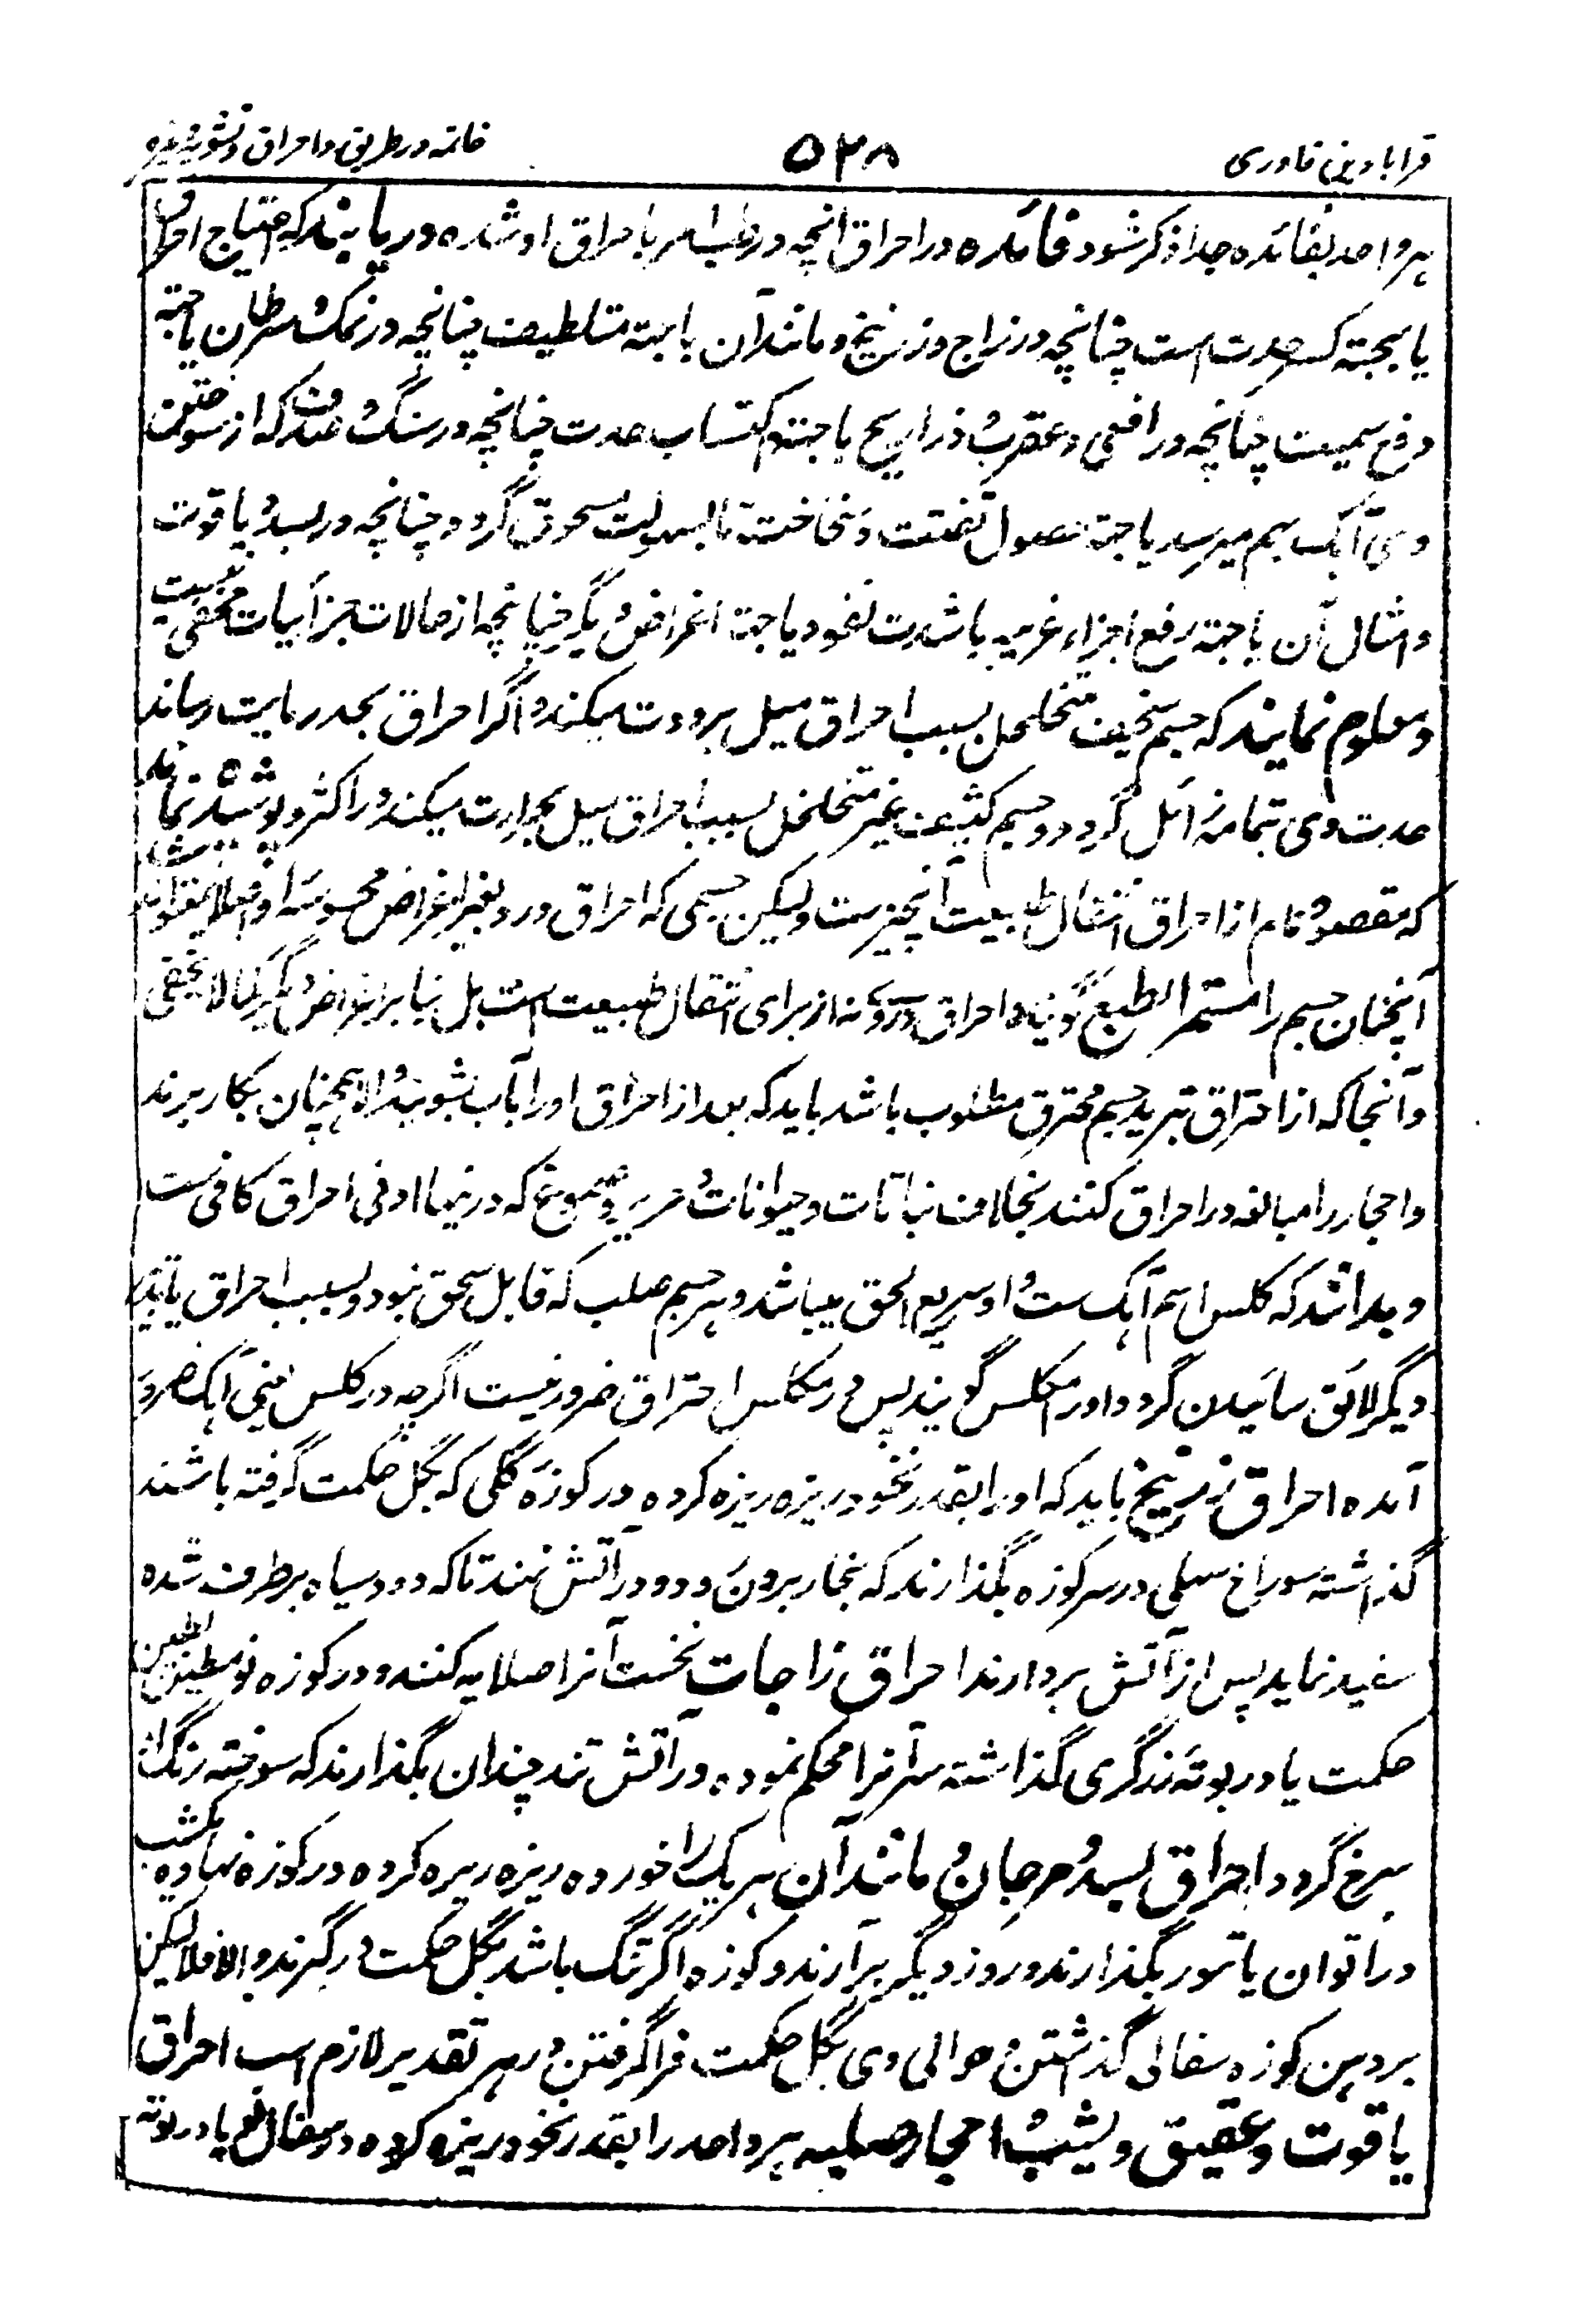 قرابادین قادری
۵۲۸
خاتمه در طریق احراق و تشویه و غیره
هر واحد بفائده جدا ذکر شود فائده در احراق انچه در طب امر باحراق او شده دریابند که احتیاج احراق
یا بجهته کسر حدت است چنانچه در زاج و زرنیخ و مانند آن یا بجهته تلطیف چنانچه در نمک و سرطان یا بجهته
دفع سمیت چنانچه در افعی و عقرب و ذراریح یا بجهته اکتساب حدت چنانچه در سنگ و صدف که از سوختن
وی آهک بهم میرسد یا جهته حصول تفتت و تا بسهولت مسحوق گردد چنانچه در بسد و یاقوت
و امثال آن یا جهته رفع اجزاء غریبه یا شدت نفوذ یا جهته اغراض دیگر چنانچه از حالات جزئیات مخفی نیست
و معلوم نمایند که جسم سخیف متخلخل بسبب احراق میل ببرودت میکند و اگر احراق بحد رمادیت رساند
حدت وی بتمامه زائل گردد و جسم کثیف غیر متخلخل بسبب احراق میل بحرارت میکند و در اکثر پوشیده نماند
که مقصود تام از احراق انتقال طبیعت آنچیزست ولیکن جسمی که احراق درو بغیر اغراض محسوسه او اصلا
آنچنان جسم را مستمر الطبع گویند و احراق درو نه از برای انتقال طبیعت است بل بنا بر اغراض دیگر کما لا یخفی
و آنجا که از احتراق تبرید جسم محترق مطلوب باشد باید که بعد از احراق او را بآب بشویند و الا همچنان بکار برند
و احجار را مبالغه در احراق کنند بخلاف نباتات و حیوانات و حریر و صموغ که درینها ادنی احراق کافی ست
و بدانند که کلس اسم آهک ست و او سریع السحق میباشد و هر جسم صلب که قابل سحق نبود و بسبب احراق یا تدبیر
دیگر لائق سائیدن گردد او را مکلس گویند پس در مکلس احتراق ضرور نیست اگرچه در کلس یعنی آهک ضرور
آمده احراق زرنیخ باید که او را بقدر نخود ریزه ریزه کرده در کوزه گلی که بگل حکمت گرفته باشند
گذاشته سوراخ سهلی در سر کوزه بگذارند که بخار برون رود و در آتش نهند تا که دود سیاه برطرف شده
سفید نماید پس از آتش بردارند احراق زاجات نخست آنرا صلایه کنند و در کوزه نو مطین بطین
حکمت یا در بوته زرگری گذاشته سر آنرا محکم نموده در آتش تند چندان بگذارند که سوخته رنگ آن
سرخ گردد احراق بسد و مرجان و مانند آن هر یک را خورده ریزه ریزه کرده در کوزه نهاده یکشب
در اتون یا تنور بگذارند و روز دیگر برآرند و کوزه اگر تنگ باشد بگل حکمت درگیرند و الا فلا لیکن
بر دهن کوزه سفالی گذاشتن و حوالی وی بگل حکمت فرا گرفتن در هر تقدیر لازم است احراق
یاقوت و عقیق و یشب و احجار صلبه هر واحد را بقدر نخود ریزه کرده در سفال نو یا در بوته